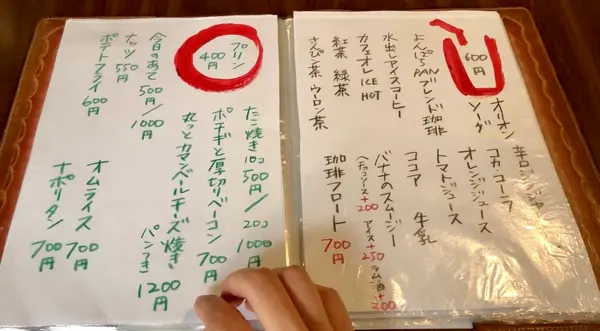 600円
オリオン
ソーダ
辛口ジンジャー
コカ・コーラ
オレンジジュース
トマトジュース
ココア 牛乳
バナナのスムージー
(チョコソース+200 アイス+250 ラム酒+200
珈琲フロート 700円
よんぱちPANブレンド珈琲
水出しアイスコーヒー
カフェオレ ICE HOT
紅茶 緑茶
さんぴん茶 ウーロン茶
プリン
400円
たこ焼き10コ 500円/20コ 1000円
ポテギと厚切りベーコン 700円
丸っとカマンベールチーズ焼き パンつき 1200円
今日のあて 500円/1000円
ナッツ 550円
ポテトフライ 600円
オムライス 700円
ナポリタン 700円